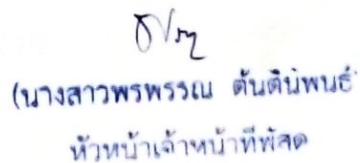 (นางสาวพรพรรณ ตันตินิพนธ์
หัวหน้าเจ้าหน้าที่พัสดุ